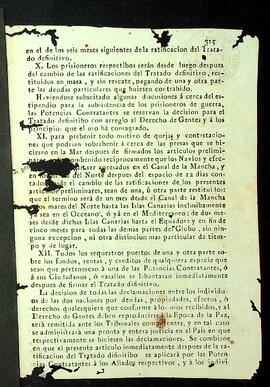 315
en el de los seis meses siguientes de la ratificacion del Trata-
do definitivo.
X. Los prisioneros respectibos serán desde luego despues
del cambio de las ratificaciones del Tratado definitivo, res-
tituidos en masa, y sin rescate, pagando de una y otra par-
te las deudas particulares que huiesen contrahido.
Haviendose subscitado algunas discusiones á cerca del es-
tipendio para la subsistencia de los prisioneros de guerra,
las Potencias Contratantes se reservan la decision para el
Tratado definitivo con arreglo al Derecho de Gentes y á los
principios que el uso há consagrado.
XI. para prebenir todo motivo de quejas y contextaciones
que podrian sobrebenir á cerca de las presas que se
hicieren en la Mar despues de firmados los articulos prelimi-
nares, se conbendrá reciprocamente que los Navios y efec-
apresados en el Canal de la Mancha y
del Norte despues del espacio de 12 dias con-
tados del cambio de las ratificaciones de los presentes
articulos preliminares, sean de una, ú otra parte restituidos
que el termino será de un mes desde el Canal de la Mancha
mares del Norte hasta las Islas Canarias inclusibamente
ya sea en el Occeano, ó ya en el Mediterraneo: de dos me-
ses desde dichas Islas Canarias hasta el Equador: y en fin de
cinco meses para todas las demas partes del Globo, sin nin-
guna excepcion, ni otra distincion mas particular de tiem-
po y de lugar.
XII. Todos los sequestros puertos de una y otra parte so-
bre los fondos, rentas, y creditos de qualquiera especie que
sean que pertenezcan á una de las Potencias Contratantes, ó
á sus Ciudadanos, ó vasallos se libertarán inmediatamente
despues de firmar el Tratado difinitivo.
La decision de todas las declaraciones entre los individuos
de las dos naciones por deudas, propiedades, efectos, ó
derechos qualesquiera que conforme á los usos recibidos, y al
Derecho de Gentes deben reproducirse á la Epoca de la Paz,
será remitida ante los Tribunales competentes, y en tal caso
se administrará una pronta y entera justicia en el País en que
respectivamente se hiciesen las declaraciones. Se combiene
en que el presente articulo inmediatamente despues de la ra-
tificacion del Tratado difinitibo se aplicará por las Poten-
cias Contratantes á los Aliados respectivos, y á los indi-